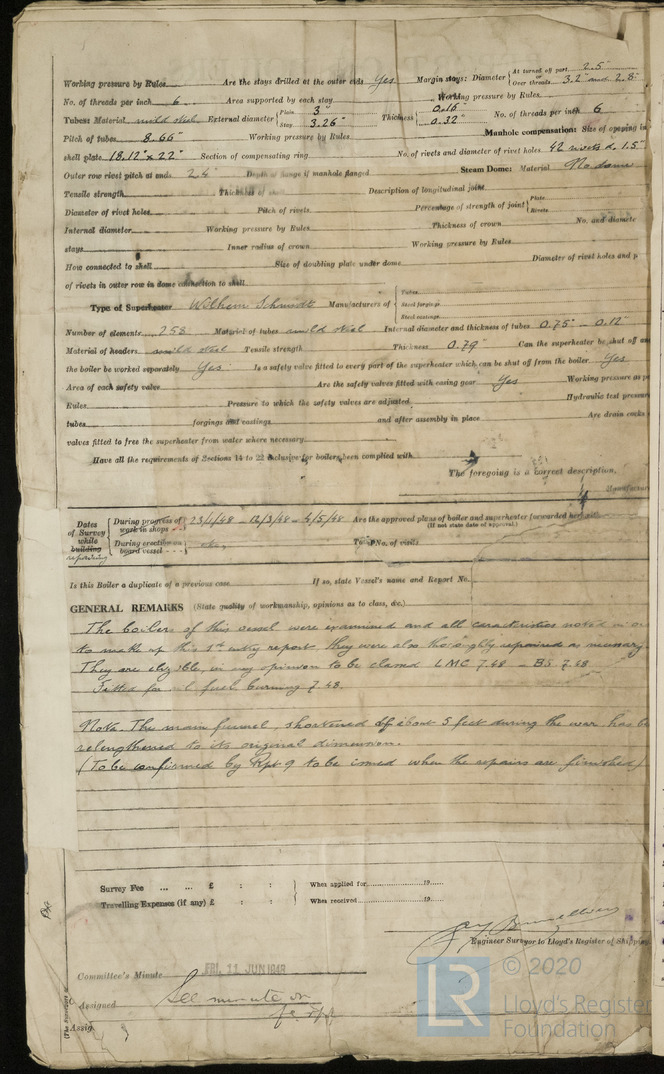 Working pressure by Rules Are the stays drilled at the outer ends Yes Margin stays: Diameter { At turned off part 2.5" or Over threads 3.2" and 2.8"
No. of threads per inch 6 Area supported by each stay Working pressure by Rules
Tubes: Material mild steel External diameter { Plain 3" Stay 3.26" Thickness { 0.16" 0.32" No. of threads per inch 6
Pitch of tubes 8.66" Working pressure by Rules Manhole compensation: Size of opening in
shell plate 18.12" x 22" Section of compensating ring No. of rivets and diameter of rivet holes 42 rivets d. 1.5"
Outer row rivet pitch at ends 24" Depth of flange if manhole flanged Steam Dome: Material No dome
Tensile strength Thickness of shell Description of longitudinal joint
Diameter of rivet holes Pitch of rivets Percentage of strength of joint { Plate Rivets
Internal diameter Working pressure by Rules Thickness of crown No. and diamete
stays Inner radius of crown Working pressure by Rules
How connected to shell Size of doubling plate under dome Diameter of rivet holes and p
of rivets in outer row in dome connection to shell
Type of Superheater Wilhem Schmidt Manufacturers of { Tubes Steel forgings Steel castings
Number of elements 258 Material of tubes mild steel Internal diameter and thickness of tubes 0.75" - 0.12"
Material of headers mild steel Tensile strength Thickness 0.79" Can the superheater be shut off an
the boiler be worked separately Yes Is a safety valve fitted to every part of the superheater which can be shut off from the boiler Yes
Area of each safety valve Are the safety valves fitted with easing gear Yes Working pressure as p
Rules Pressure to which the safety valves are adjusted Hydraulic test pressure
tubes forgings and castings and after assembly in place Are drain cocks
valves fitted to free the superheater from water where necessary
Have all the requirements of Sections 14 to 22 inclusive for boilers been complied with
The foregoing is a correct description,
Manufactur
Dates of Survey while building repairing { During progress of work in shops 23/1/48 - 12/3/48 - 4/5/48 Are the approved plans of boiler and superheater forwarded herewith (If not state date of approval.)
During erection on board vessel Total No. of visits
Is this Boiler a duplicate of a previous case If so, state Vessel's name and Report No.
GENERAL REMARKS (State quality of workmanship, opinions as to class, &c.)
The boilers of this vessel were examined and all caracteristics noted in or
to make up this 1st entry report they were also thoroughly repaired as necessary.
They are eligible, in my opinion to be classed LMC 7.48 - BS 7.48
Fitted for oil fuel burning 7.48.
Note. The main funnel, shortened of about 5 feet during the war has be
relengthened to its original dimension.
(To be confirmed by Rpt 9 to be issued when the repairs are finished)
Survey Fee ... ... £ : : } When applied for 19
Travelling Expenses (if any) £ : : } When received 19
Engineer Surveyor to Lloyd's Register of Shipping
Committee's Minute FRI. 11 JUN 1948
Assigned See minute on
fe rpt
Assig
© 2020
LR Lloyd's Register
Foundation